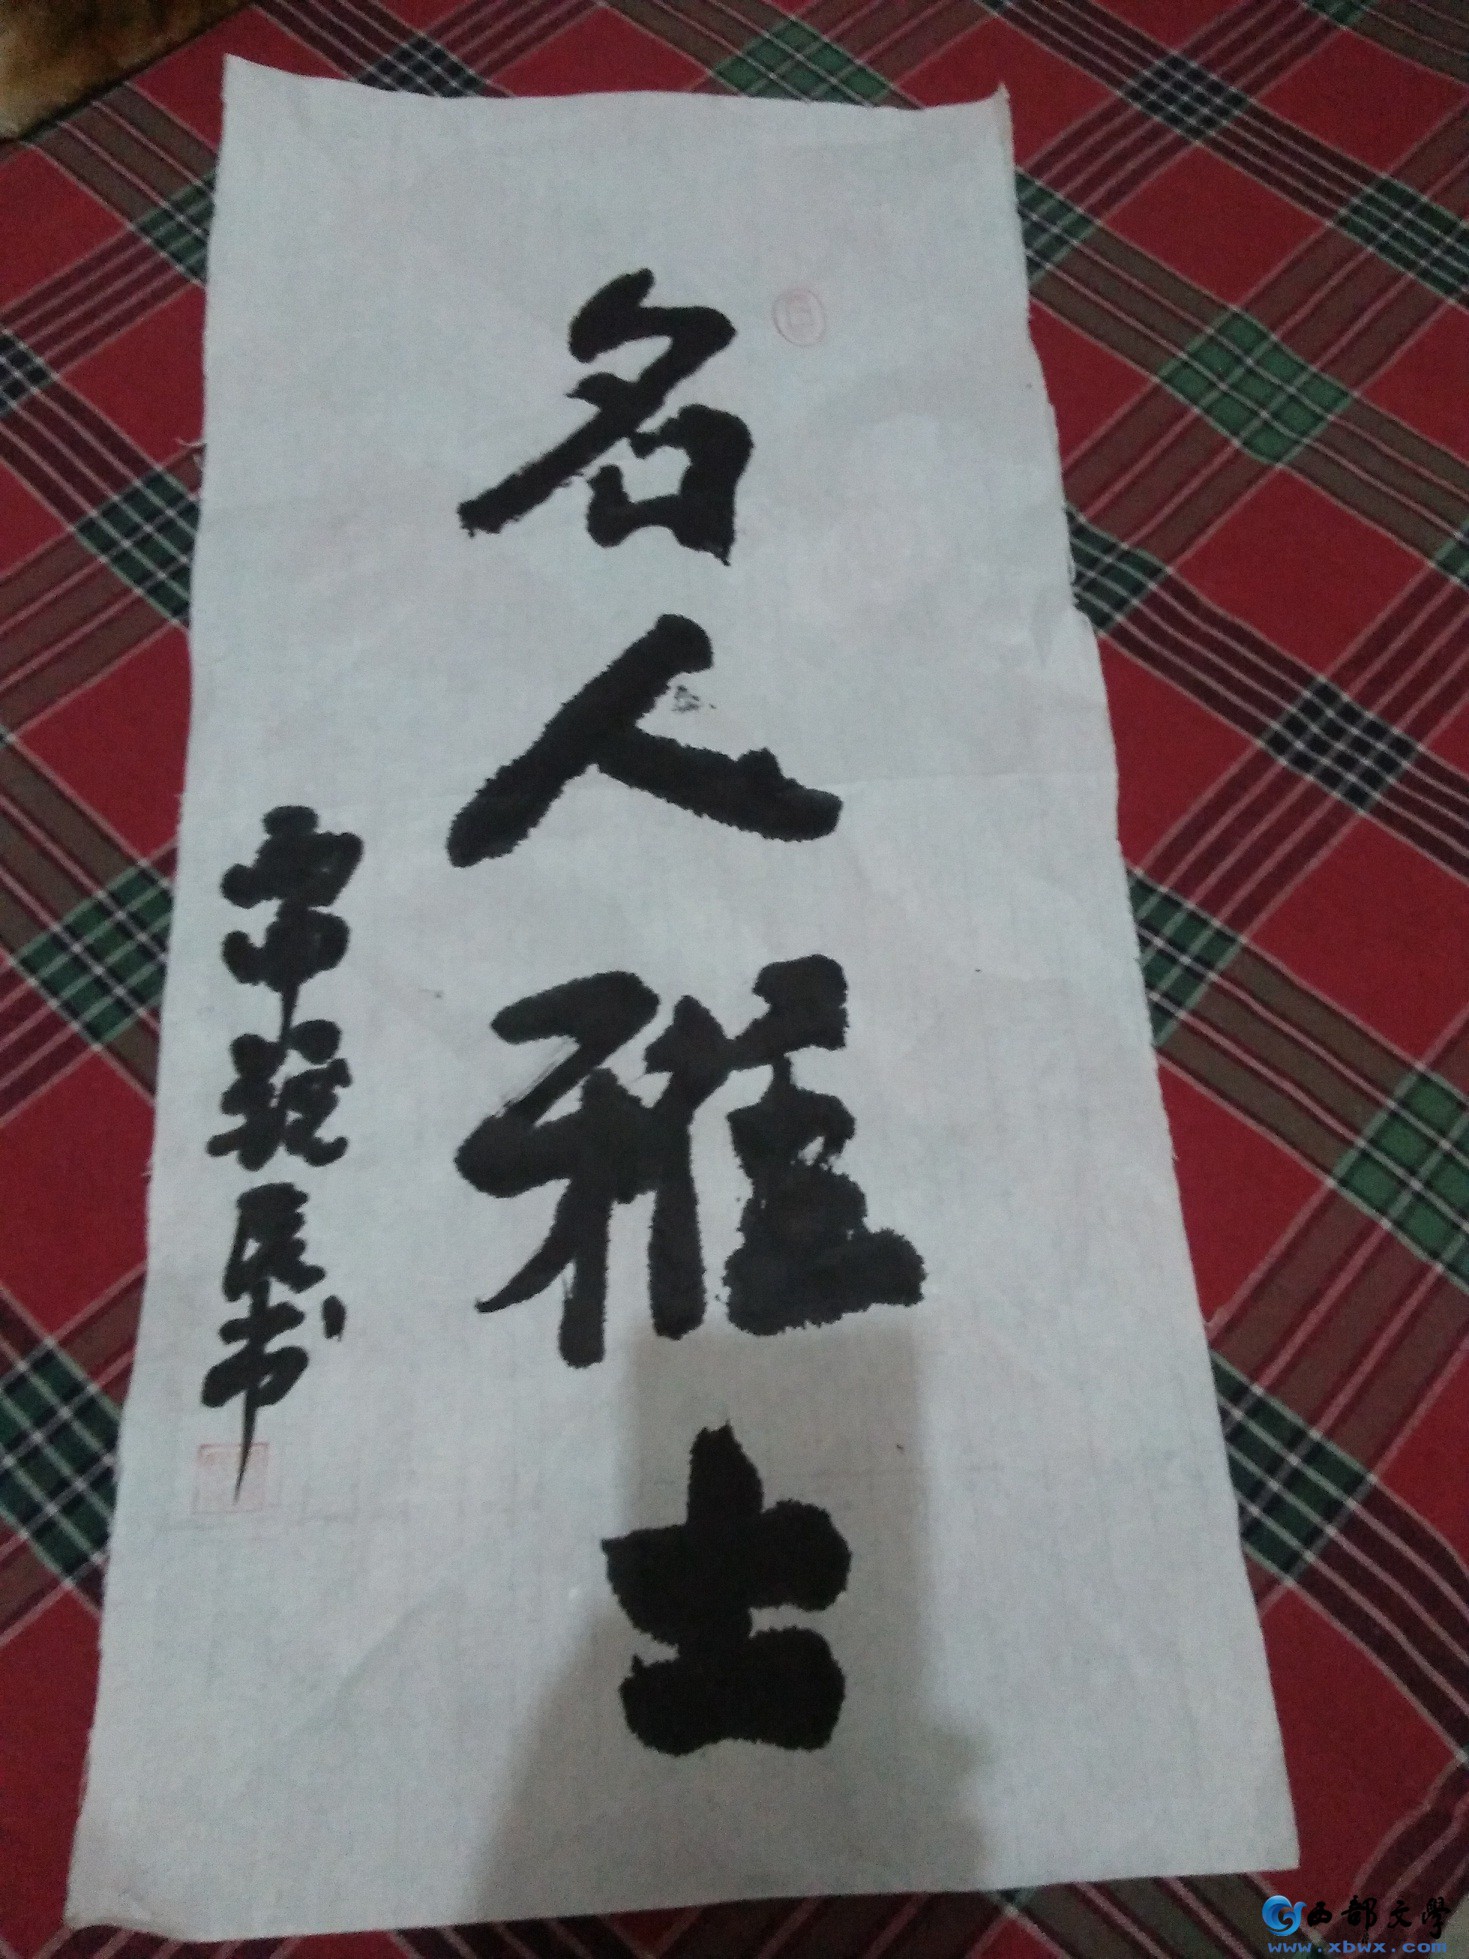 名人雅士
书
西部文学
www.xbwx.com